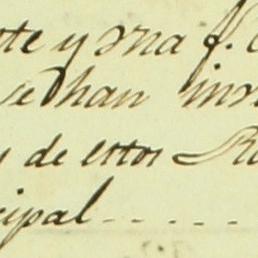 tte y una f.
se han ins
y de estos R
cipal